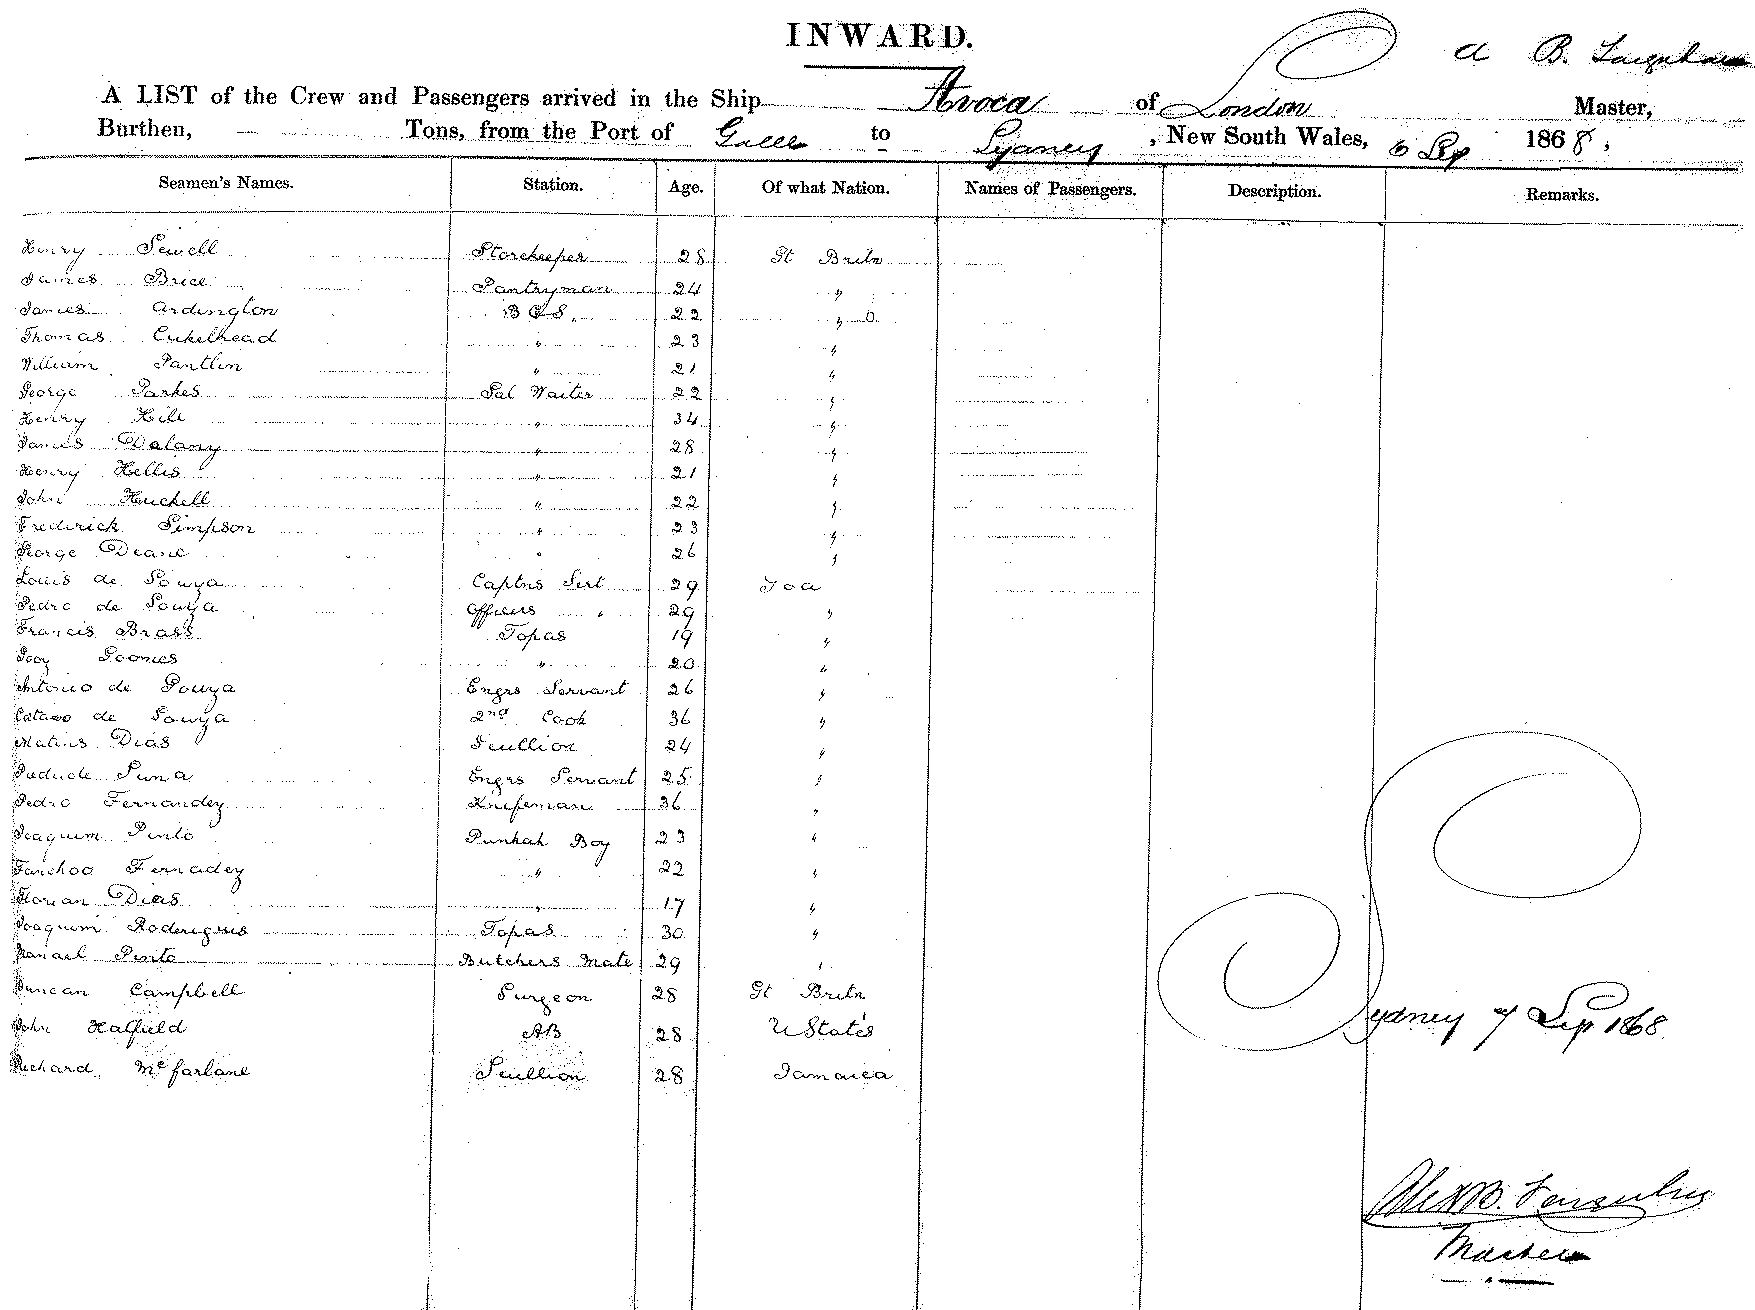 INWARD.
A B.
A LIST of the Crew and Passengers arrived in the Ship Avoca of London Master,
Burthen, — Tons, from the Port of Galle to Sydney, New South Wales, 6 Sep 1868,
Seamen's Names. Station. Age. Of what Nation. Names of Passengers. Description. Remarks.
Henry Sewell Storekeeper 28 Gt Britn
James Brice Pantryman 24 "
James Ardington B & S. 22 "
Thomas " 23 "
William Pantlin " 21 "
George Parkes Sal Waiter 22 "
Henry Hill " 34 "
James Dalany " 28 "
Henry Hellis " 21 "
John Huckell " 22 "
Frederick Simpson " 23 "
George Deane " 26 "
Louis de Souza Captns Sert 29 Goa
Pedro de Souza Officers " 29 "
Francis Brass Topas 19 "
Goomes " 20 "
Antonio de Souza Engrs Servant 26 "
de Souza 2nd Cook 36 "
Matius Dias Scullion 24 "
Engrs Servant 25 "
Pedro Fernandez Knifeman 36 "
Joaquim Pinto Punkah Boy 23 "
Fernadez " 22 "
Florian Dias " 17 "
Joaquim Roderigues Topas 30 "
Manael Pinto Butchers Mate 29 "
Duncan Campbell Surgeon 28 Gt Britn
John Halfield AB 28 U States
Richard McFarlane Scullion 28 Jamaica
Sydney 7 Sep 1868
Alex B.
Master